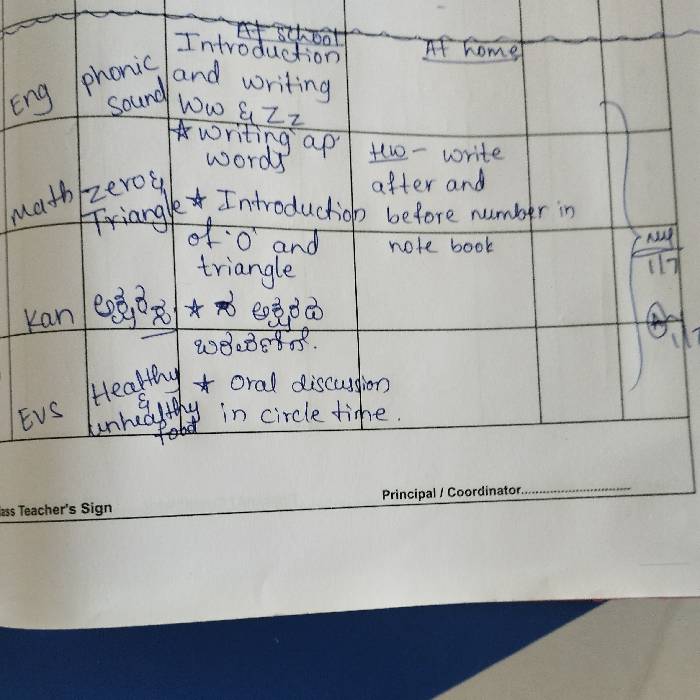 At school
At home
Eng
phonic
sound
Introduction
and writing
Ww & Zz
★ writing ap
words
Math
Zero &
Triangle
★ Introduction
of '0' and
triangle
HW - write
after and
before number in
note book
Kan
★
ಬರವಣಿಗೆ.
EVS
Healthy
&
unhealthy
food
★ Oral discussion
in circle time.
1/7
1/7
ass Teacher's Sign
Principal / Coordinator..............................